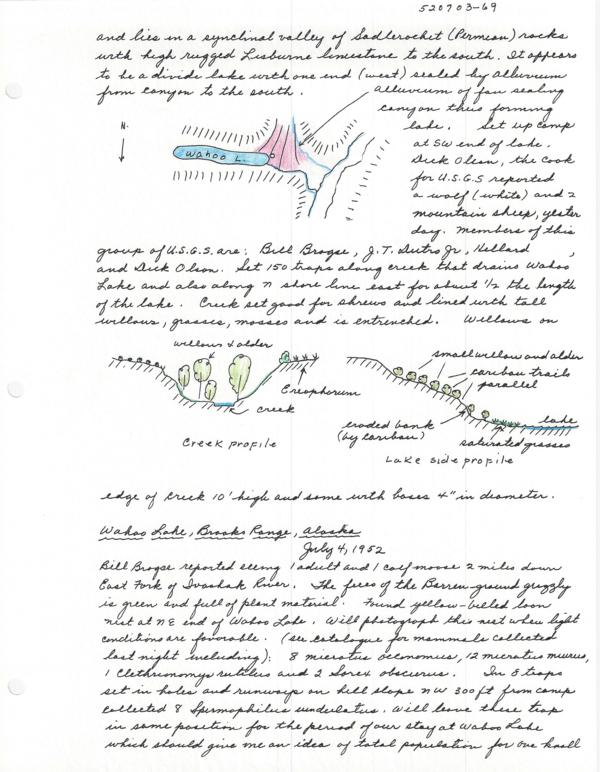 520703-69
and lies in a synclinal valley of Sadlerochit (Permian) rocks
with high rugged Lisburne limestone to the south. It appears
to be a divide lake with one end (west) sealed by alluvium
from canyon to the south.
alluvium of fan sealing
canyon thus forming
lake. Set up camp
at SW end of lake.
Dick Olson, the cook
for U.S.G.S reported
a wolf (white) and 2
mountain sheep, yester
day. Members of this
N.
Wahoo L.
group of U.S.G.S. are: Bill Brogse, J.T. Dutro Jr, Hellard ,
and Dick Olson. Set 150 traps along creek that drains Wahoo
Lake and also along n shore line east for about 1/2 the length
of the lake. Creek set good for shrews and lined with tall
willows, grasses, mosses and is entrenched. Willows on
willows & alder
Ereophorum
creek
Creek profile
small willow and alder
caribou trails
parallel
eroded bank
(by caribou)
lake
saturated grasses
Lake side profile
edge of creek 10' high and some with bases 4" in diameter.
Wahoo Lake, Brooks Range, Alaska
July 4, 1952
Bill Brogse reported seeing 1 adult and 1 calf moose 2 miles down
East Fork of Ivashak River. The feces of the Barren-ground grizzly
is green and full of plant material. Found yellow-billed loon
nest at NE end of Wahoo Lake. Will photograph this nest when light
conditions are favorable. (see catalogue for mammals collected
last night including): 8 microtus oeconomus, 12 microtus miurus,
1 Clethrionomys rutilus and 2 Sorex obscurus. In 8 traps
set in holes and runways on hill slope NW 300 ft from camp
collected 8 Spermophilus undulatus. Will leave these trap
in same position for the period of our stay at Wahoo Lake
which should give me an idea of total population for one knoll